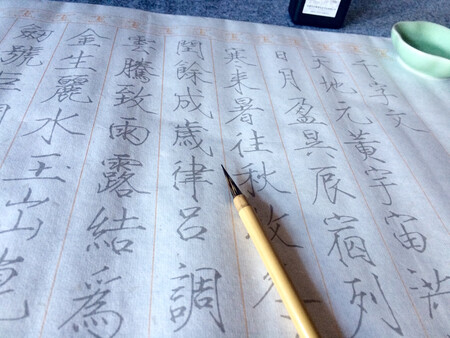 千字文
天地元黄宇宙洪
日月盈昃辰宿列
寒来暑往秋收冬
閏餘成歳律呂調
雲騰致雨露結爲
金生麗水玉出崑
劍號巨